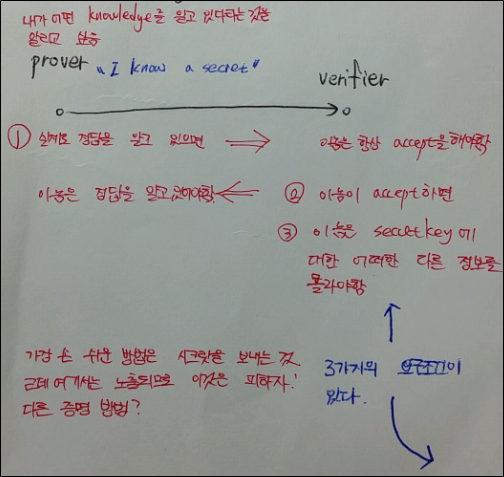 내가 어떤 knowledge를 알고 있다라는 것을
알리고 싶음
prover "I know a secret"
verifier
① 실제로 정답을 알고 있으면
이놈은 항상 accept을 해야함
이놈은 정답을 알고있어야함
② 이놈이 accept하면
③ 이놈은 secret key에
대한 어떠한 다른 정보를
몰라야함
가장 손 쉬운 방법은 시크릿을 보내는 것
근데 여기서는 노출되므로 이것은 피하자!
다른 증명 방법?
3가지의 요구조건이
있다.